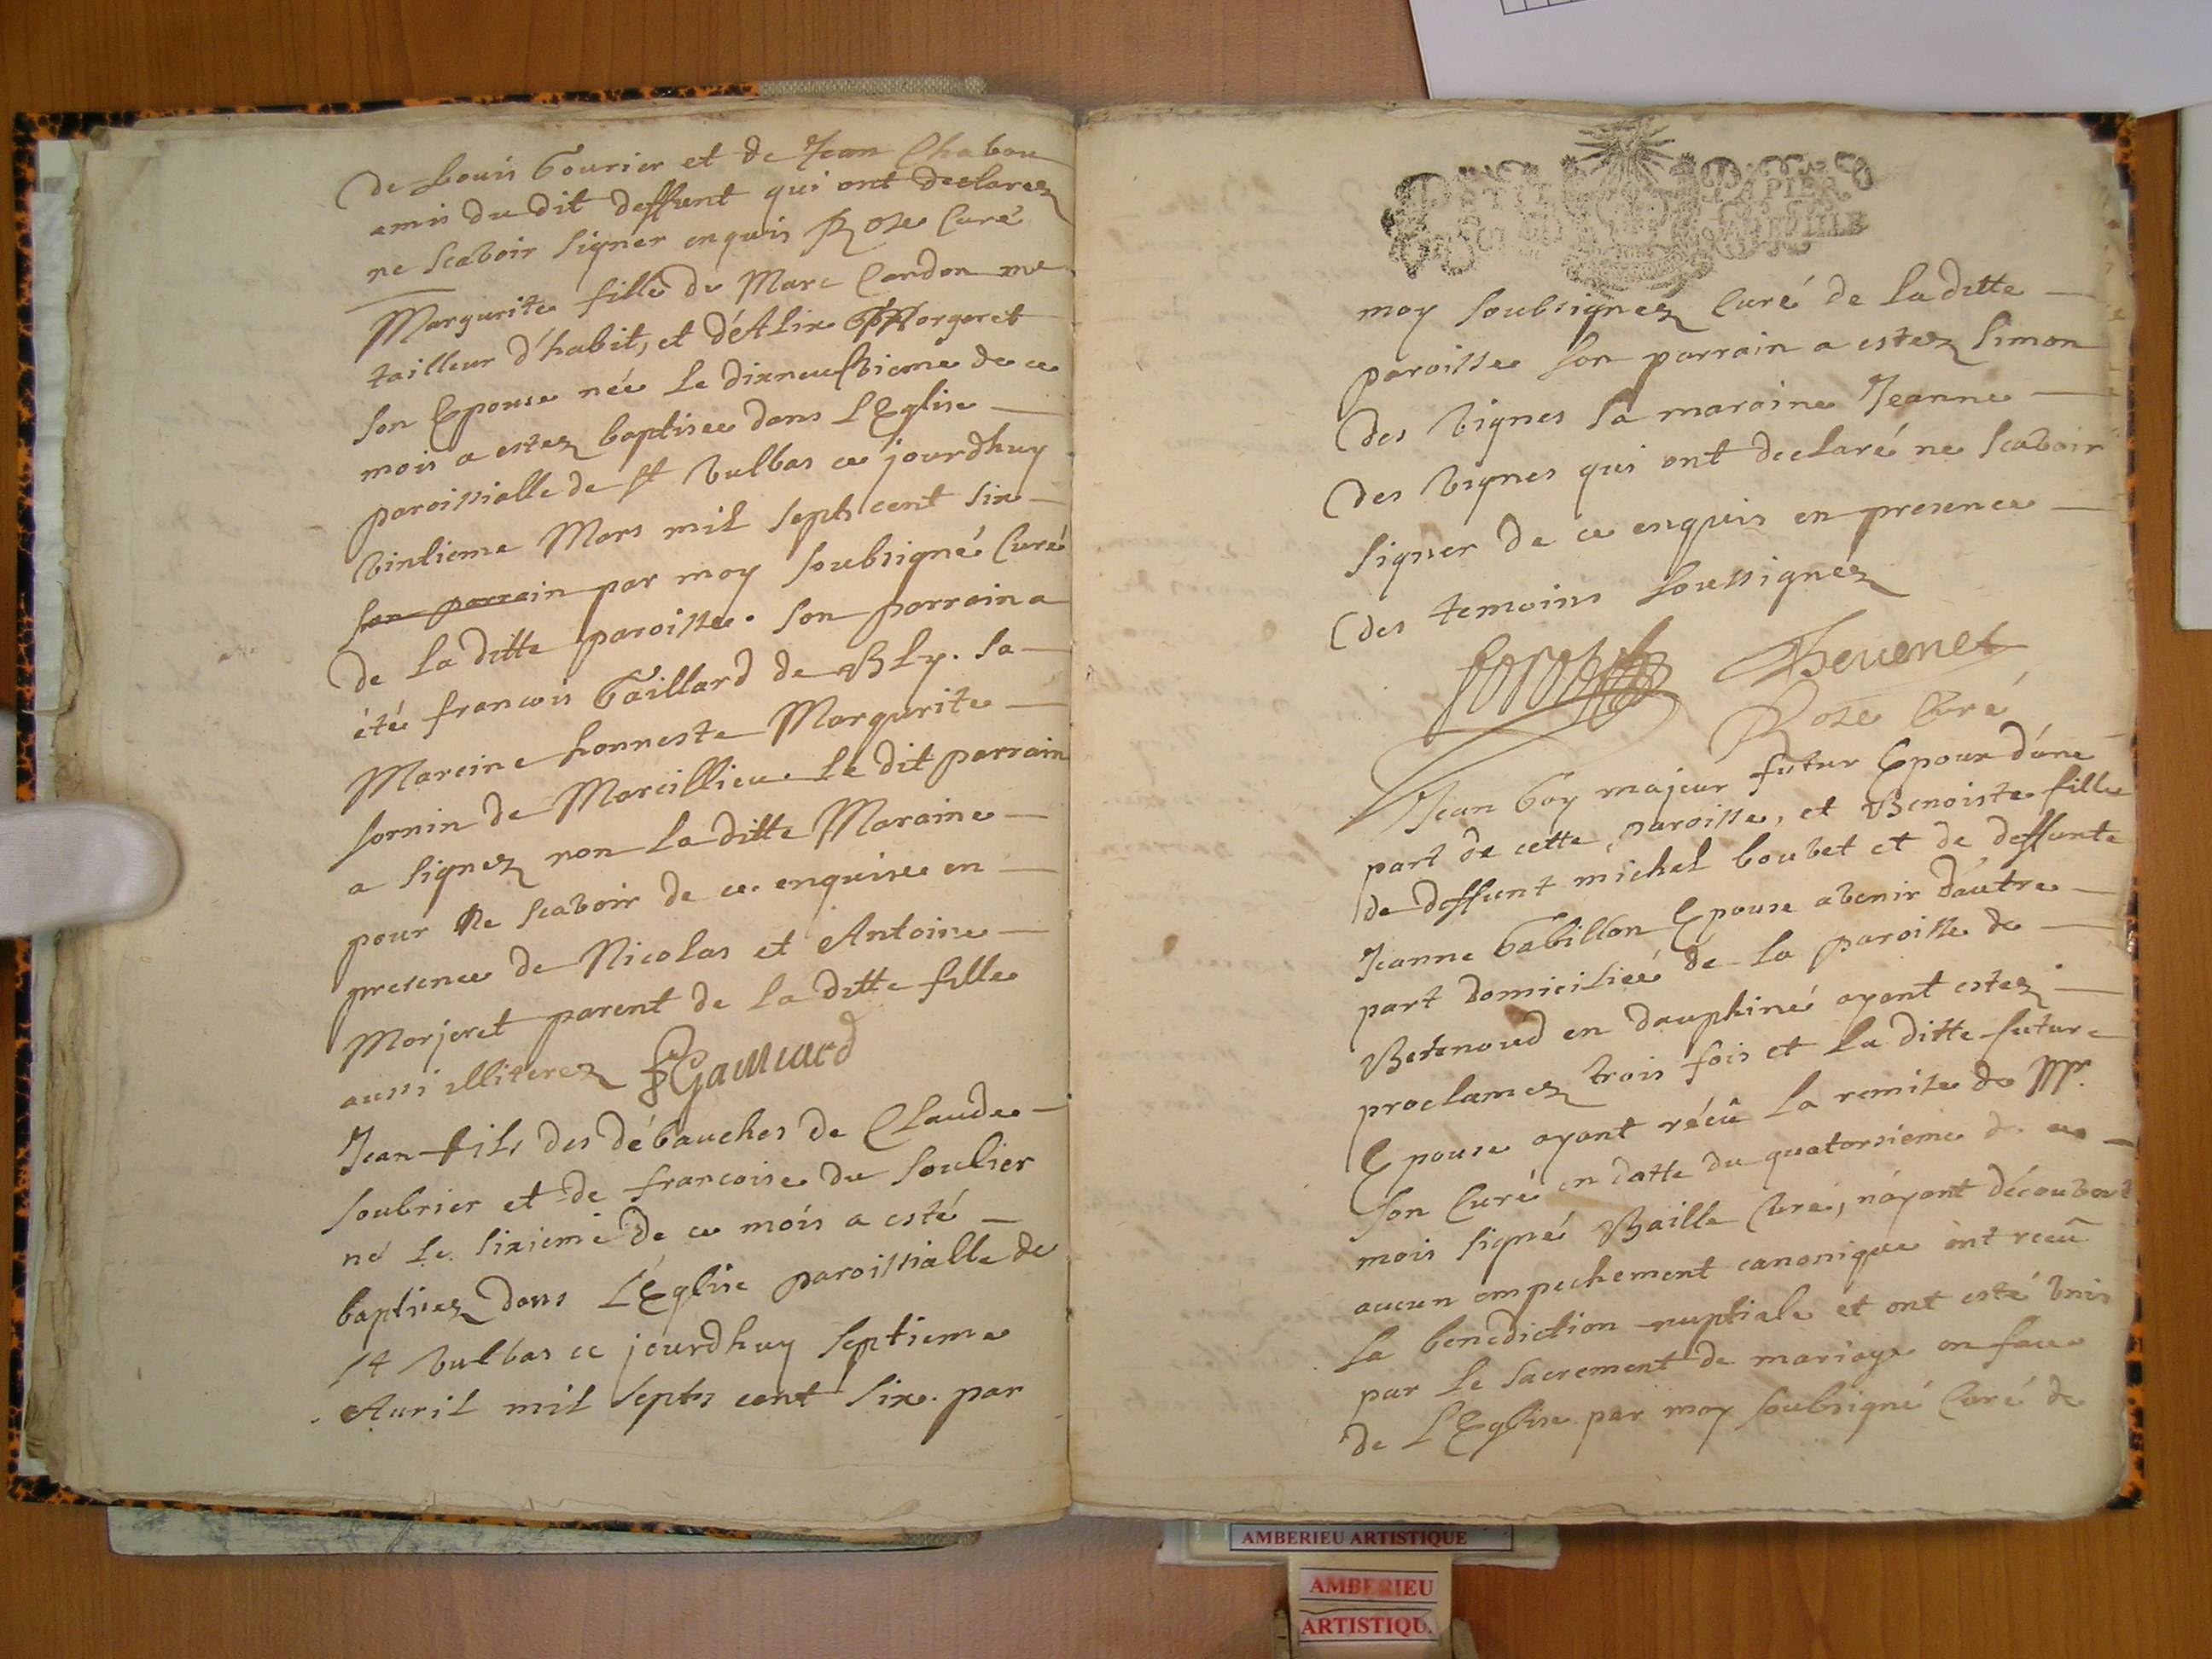 de Louis Gourier et de Jean Chabou
amis du dit deffunt qui ont declarez
ne scavoir signer enquis Roze Curé
Margurite fille de Marc Candon me
tailleur d'habit, et d'Alix Morgeret
son Epouse née le dixneufvieme de ce
mois a estez baptisee dans L'Eglise
paroissialle de st Vulbas ce jourdhuy
vintieme Mars mil septs cent six
son parrain par moy soubsigné Curé
de la ditte paroisse. son parrain a
été francois Gaillard de BLy. sa
Mareine honneste Margurite
sornin de Marcillieu. Le dit parrain
a signez non la ditte Maraine
pour Ne scavoir de ce enquise en
presence de Nicolas et Antoine
Morjeret parent de la ditte fille
aussi illiterez FGaillard
Jean fils des débauches de Claude
soubrier et de francoise du soulier
né le sixieme de ce mois a esté
baptisez dans L'Eglise paroissialle de
st Vulbas ce jourdhuy septieme
Auril mil septs cent six. par
PETIT PAPIER
moy soubsignez Curé de la ditte
paroisse son parrain a estez simon
des vignes sa maraine Jeanne
des vignes qui ont declaré ne scavoir
signer de ce enquis en presence
des temoins soussignez
Theuenet
Roze Curé
Jean Goy majeur futur Epour d'une
part de cette paroisse, et Benoiste fille
de deffunt michel bouvet et de deffunte
Jeanne Gabillon Epouse avenir d'autre
part domiciliée de la paroisse de
en dauphiné ayant estez
proclamez trois fois et la ditte future
Epouse ayant récû la remise de Mr.
son Curé en datte du quatorsieme de ce
mois signé Baille Curé, n'ayant découvert
aucun empechement canonique ont receû
la benediction nuptiale et ont esté vnis
par le sacrement de mariage en face
de L'Eglise par moy soubsigné Curé de
AMBERIEU ARTISTIQUE
AMBERIEU
ARTISTIQU